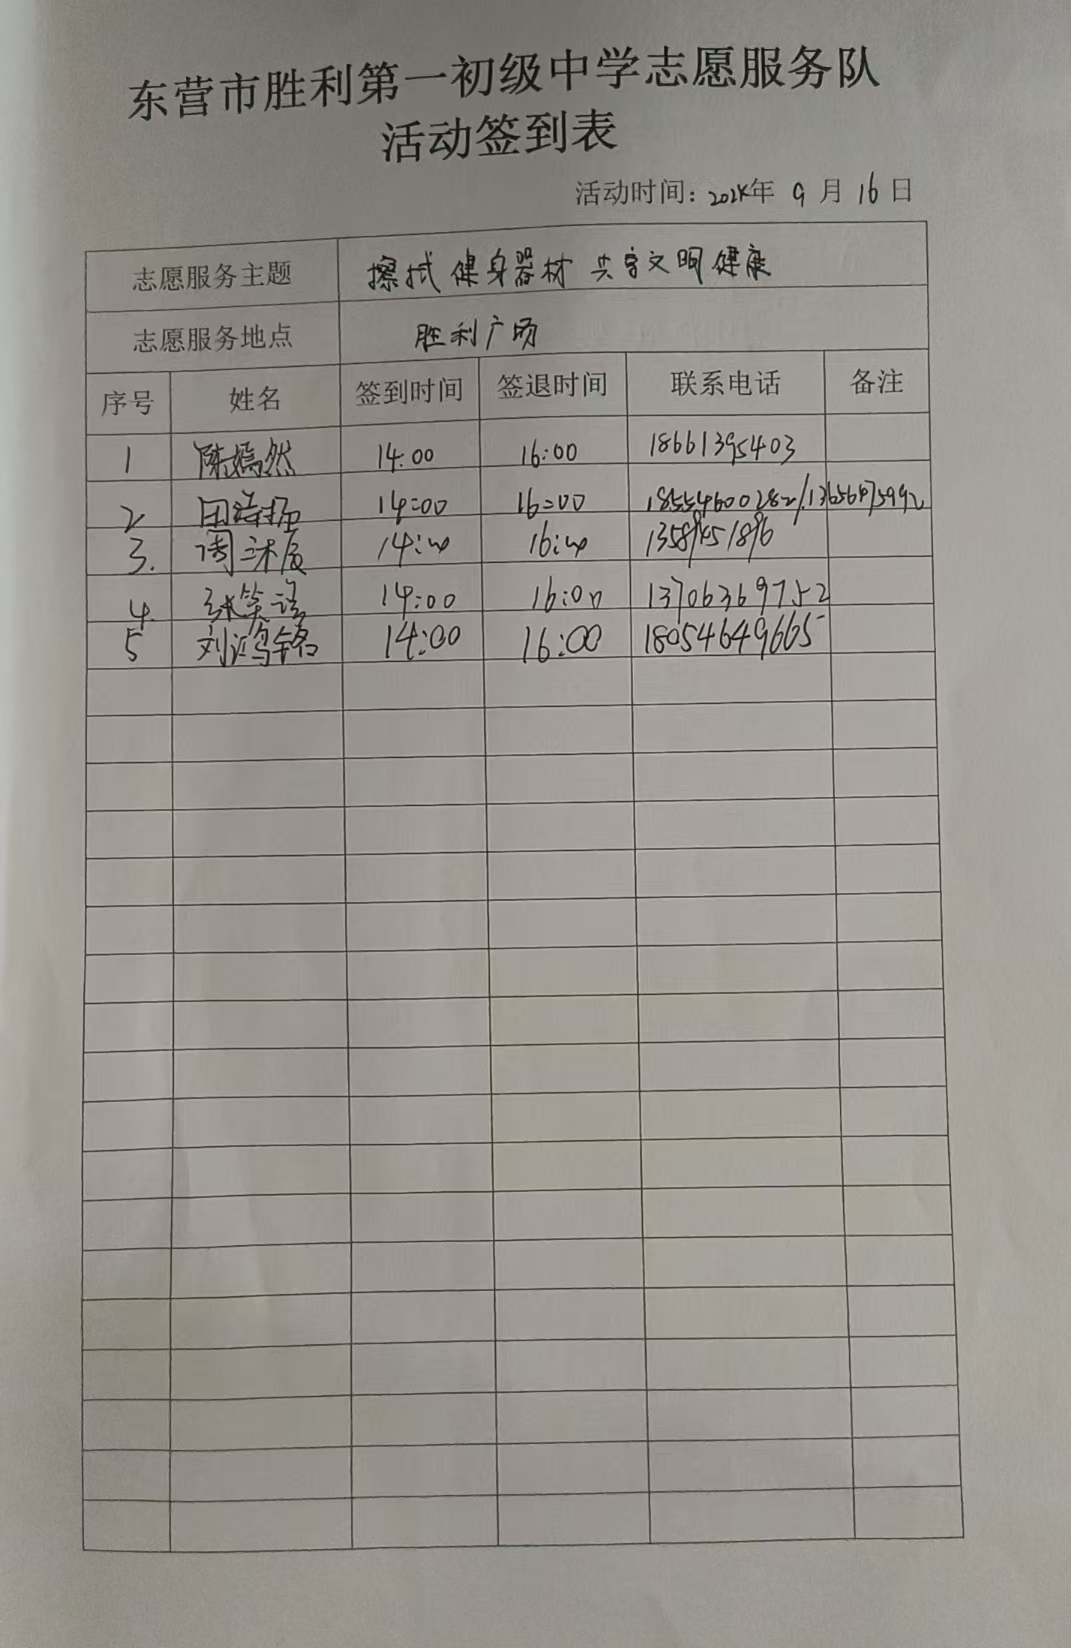 东营市胜利第一初级中学志愿服务队
活动签到表
活动时间：2024年 9 月 16 日
志愿服务主题 擦拭健身器材 共享文明健康
志愿服务地点 胜利广场
序号 姓名 签到时间 签退时间 联系电话 备注
1 陈嫣然 14:00 16:00 18661395403
2 田 14:00 16:00
3. 周 14:00 16:00
4. 张笑语 14:00 16:00 13706369752
5 刘鸿铭 14:00 16:00 18054649665